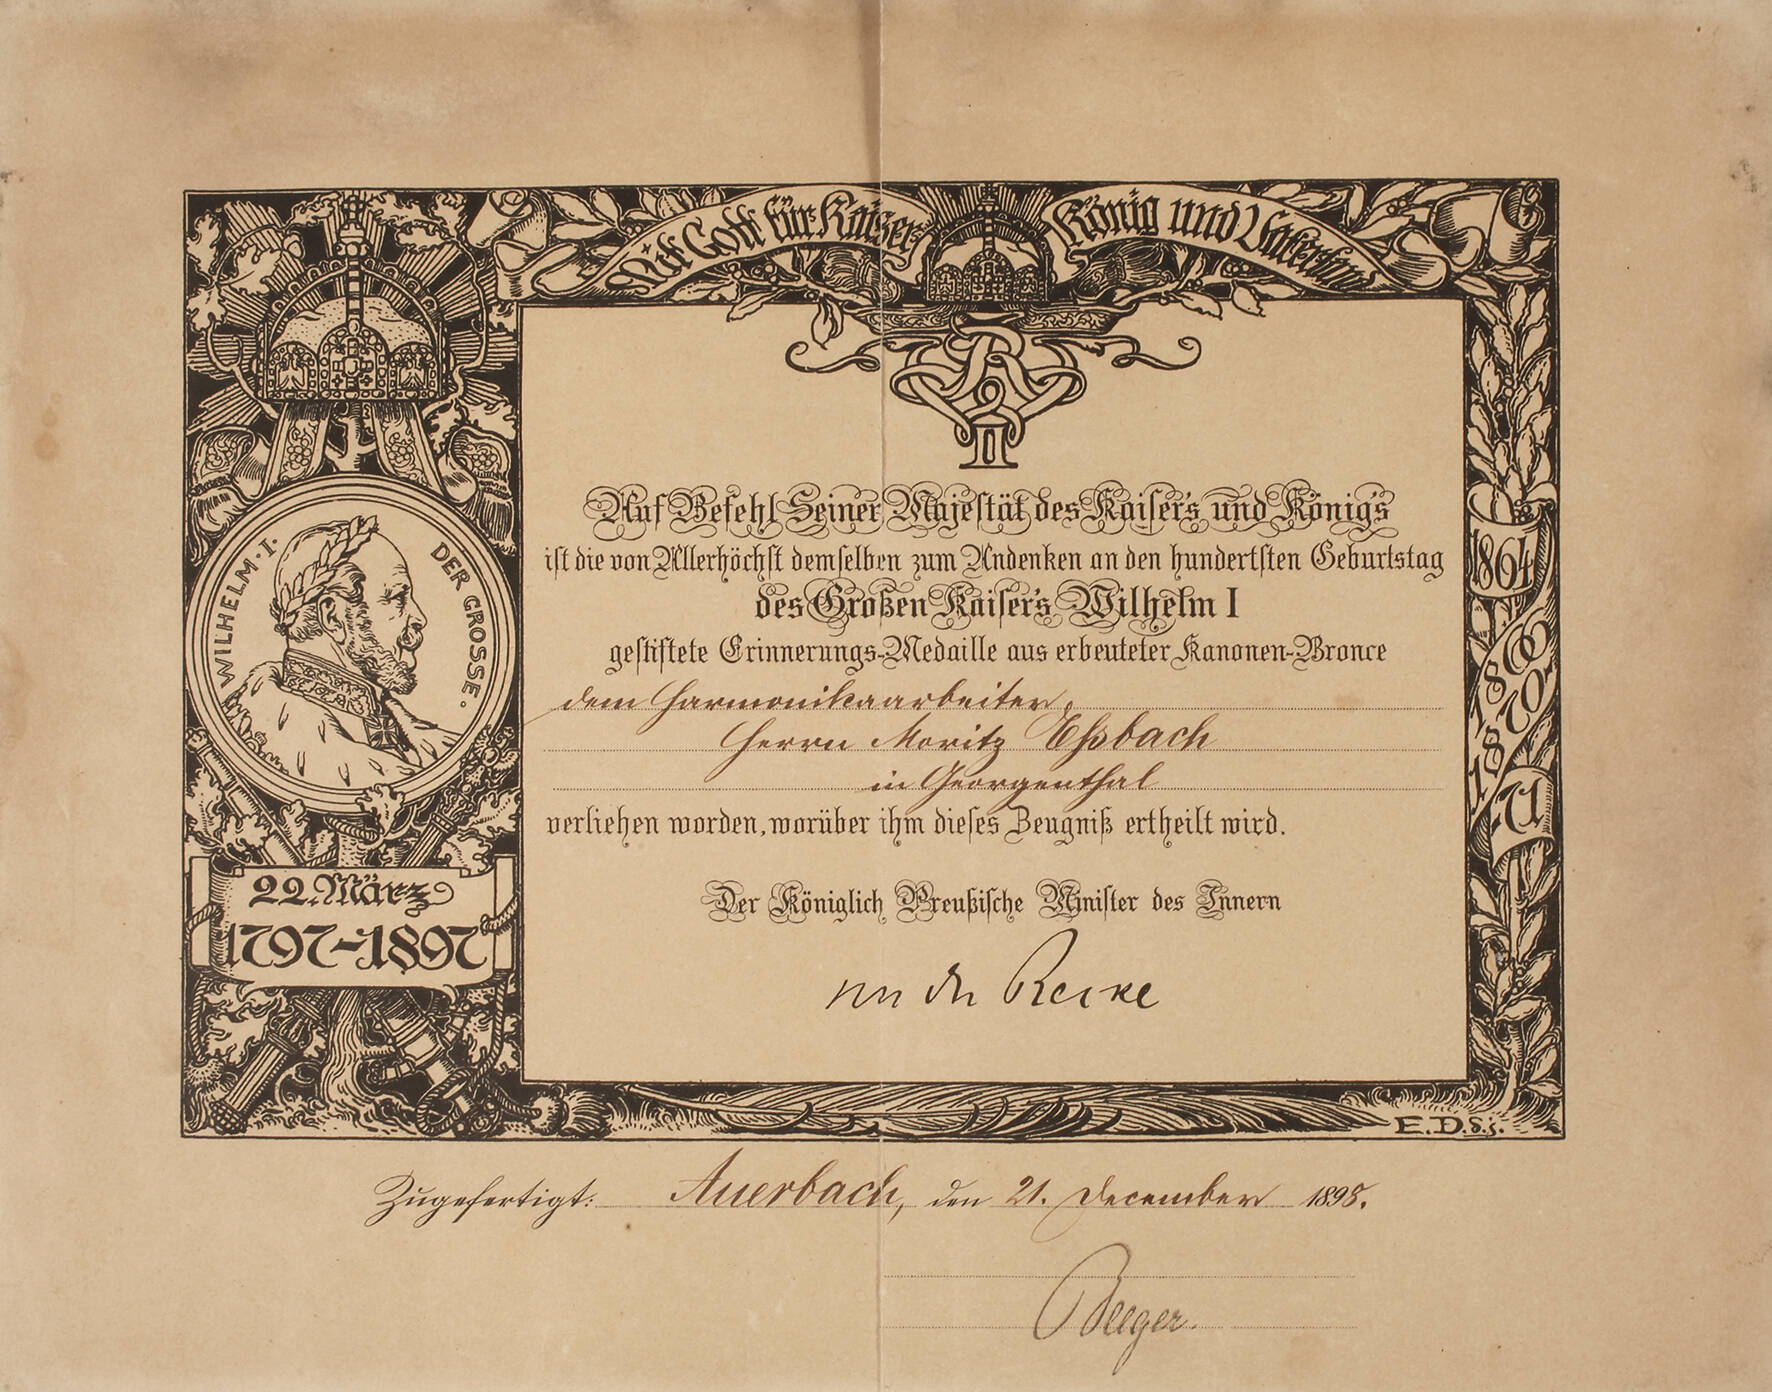 Mit Gott für Kaiser König und Vaterland
WILHELM · I · DER GROSSE ·
Auf Befehl Seiner Majestät des Kaisers und Königs
ist die von Allerhöchst demselben zum Andenken an den hundertsten Geburtstag
des Großen Kaisers Wilhelm I
gestiftete Erinnerungs-Medaille aus erbeuteter Kanonen-Bronce
dem Harmonikaarbeiter,
Herrn Moritz Eßbach
in Georgenthal
verliehen worden, worüber ihm dieses Zeugniß ertheilt wird.
Der Königlich Preußische Minister des Innern
von der Recke
22. März
1797-1897
1864
1866
1870
71
E.D.d.j.
Zugefertigt: Auerbach, den 21. December 1898.